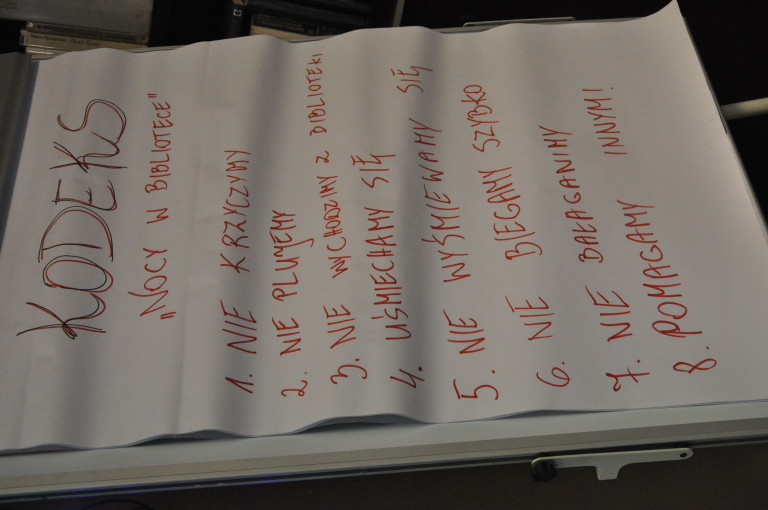 KODEKS
„NOCY W BIBLIOTECE"
1. NIE KRZYCZYMY
2. NIE PLUJEMY
3. NIE WYCHODZIMY Z BIBLIOTEKI
4. UŚMIECHAMY SIĘ
5. NIE WYŚMIEWAMY SIĘ
6. NIE BIEGAMY SZYBKO
7. NIE BAŁAGANIMY
8. POMAGAMY INNYM!